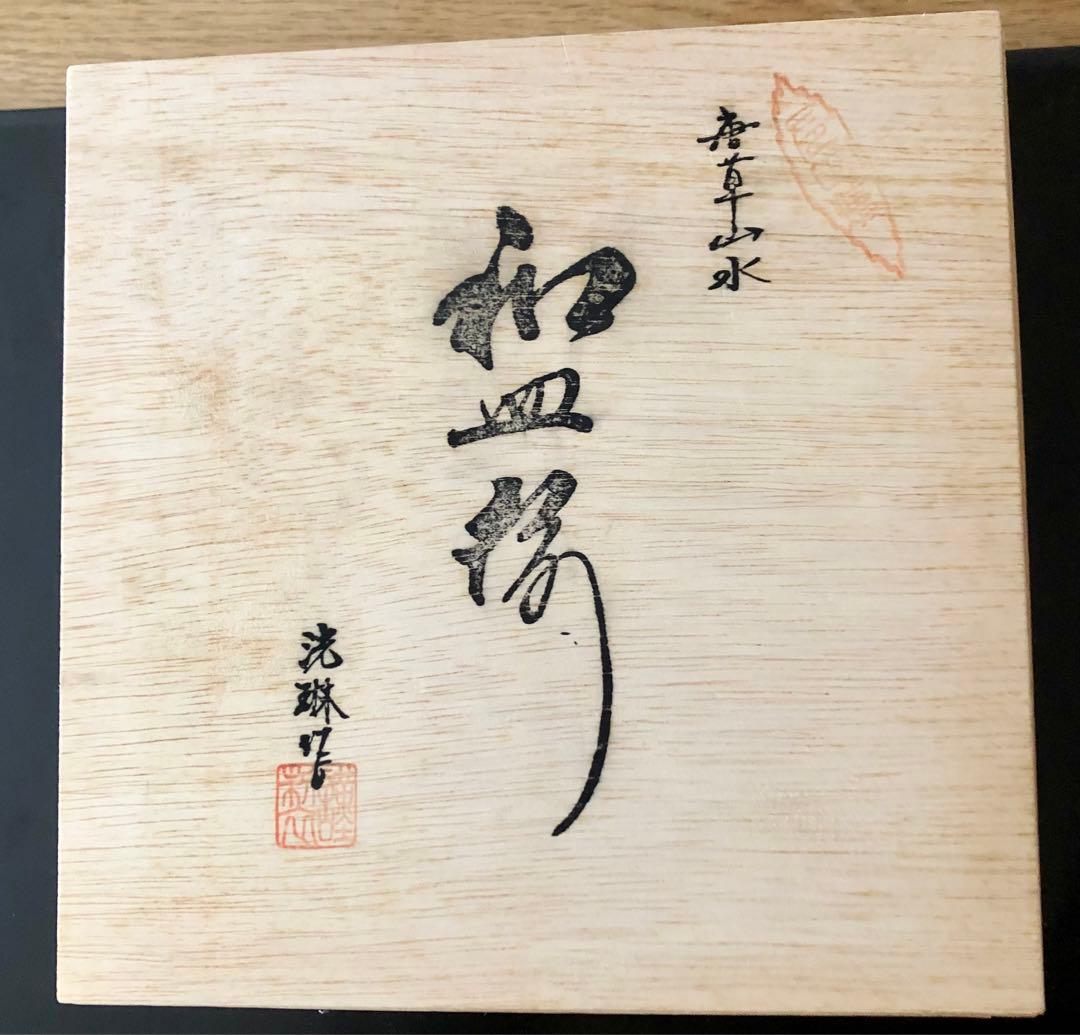 唐草山水
和皿揃
洸琳作